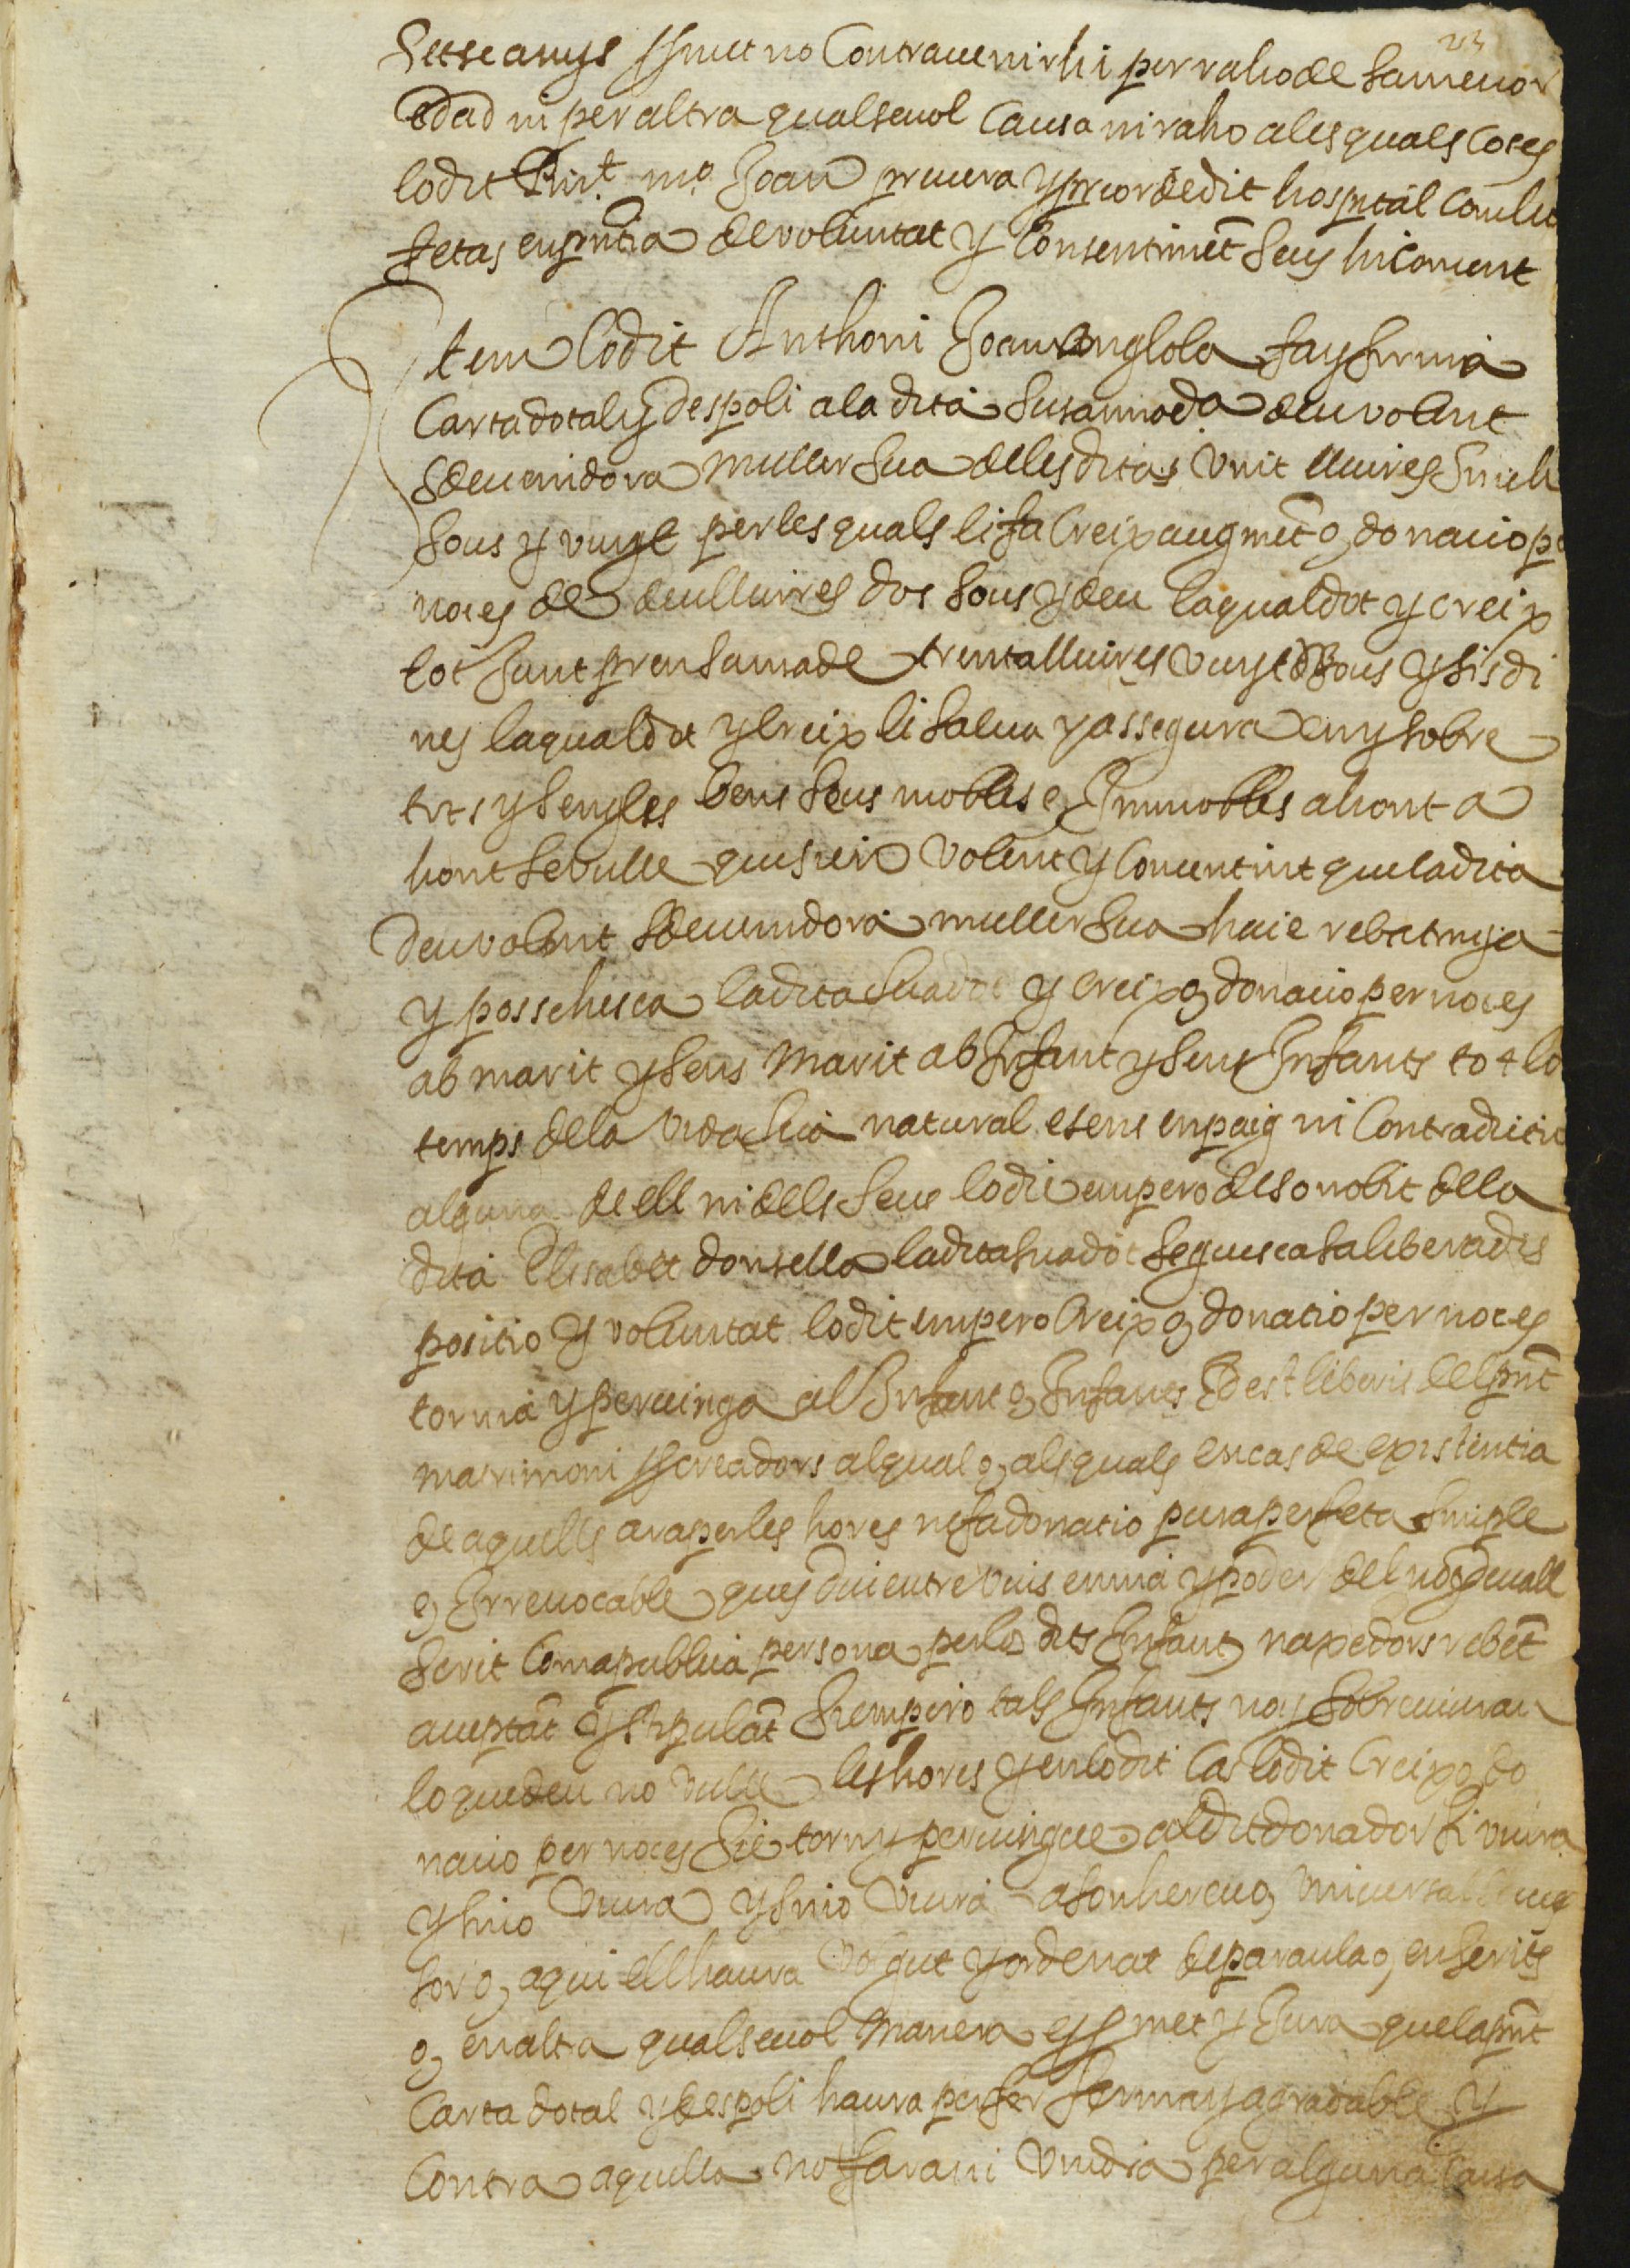 23
Setse anys y promet no Contravenir hi per raho de sa menor
edad ni per altra qualsevol Causa ni raho a les quals Coses
lo dit Rnt. mo. Joan y prior de dit hospital
fetas en pntia de voluntat y Consentimēt seus hi Conuent
Item lo dit Anthoni Joan Anglola fa y firma
Carta dotal y despoli a la dita Susanna da deu volent
sdeuenidora muller sua de les ditas vint lliures
sous y vuyt per les quals li fa Creix augmēt o, donacio p
noces de deu lliures dos sous y deu la qual dot y creix
tot junt pren suma de trenta lliures vuyt sous y sis di
nes la qual dot y Creix li salua y assegura en y sobre
tots y sengles bens seus mobles e Immobles ahont a
hont se vulle que sien volent y Consentint que la dita
deu volent sdeuenidora muller sua haie rebe tinga
y possehesca la dita sua dot y creix o, donacio per noces
ab marit y sens marit ab Infant y sens Infants tot lo
temps de la vida sua natural e sens enpaig ni Contradictio
alguna de ell ni dels seus lo die empero de son obit de la
dita Elisabet donsella la dita sua dot seguesca sa libera dis
positio y voluntat lo dit empero Creix o, donatio per noces
torna y pervinga al Infant o, Infants Id est liberis del pnt
matrimoni creadors al qual o, als quals en cas de existentia
de aquells ara per les hores ne fa donatio pura perfeta simple
o, Irrevocable ques diu entre vius en ma y poder del not deuall
scrit Com a publica persona per los dits Infants naxedors rebēt
acceptāt y stipulāt Si empero tals Infants noy sobreviuran
lo que deu no vulle les hores y en lo dit Cas lo dit Creix o, do
nacio per noces sie torn y pervingue al dit donador si viura
y si no viura y si no viura a son hereu o, universal suc
sor o, a qui ell haura volgut y ordenat de paraula o, en scrits
o, en altra qualsevol manera e promet y Jura que la pnt
Carta dotal y despoli haura per ferma y agradable y
Contra aquella no fara ni vindra per alguna Causa